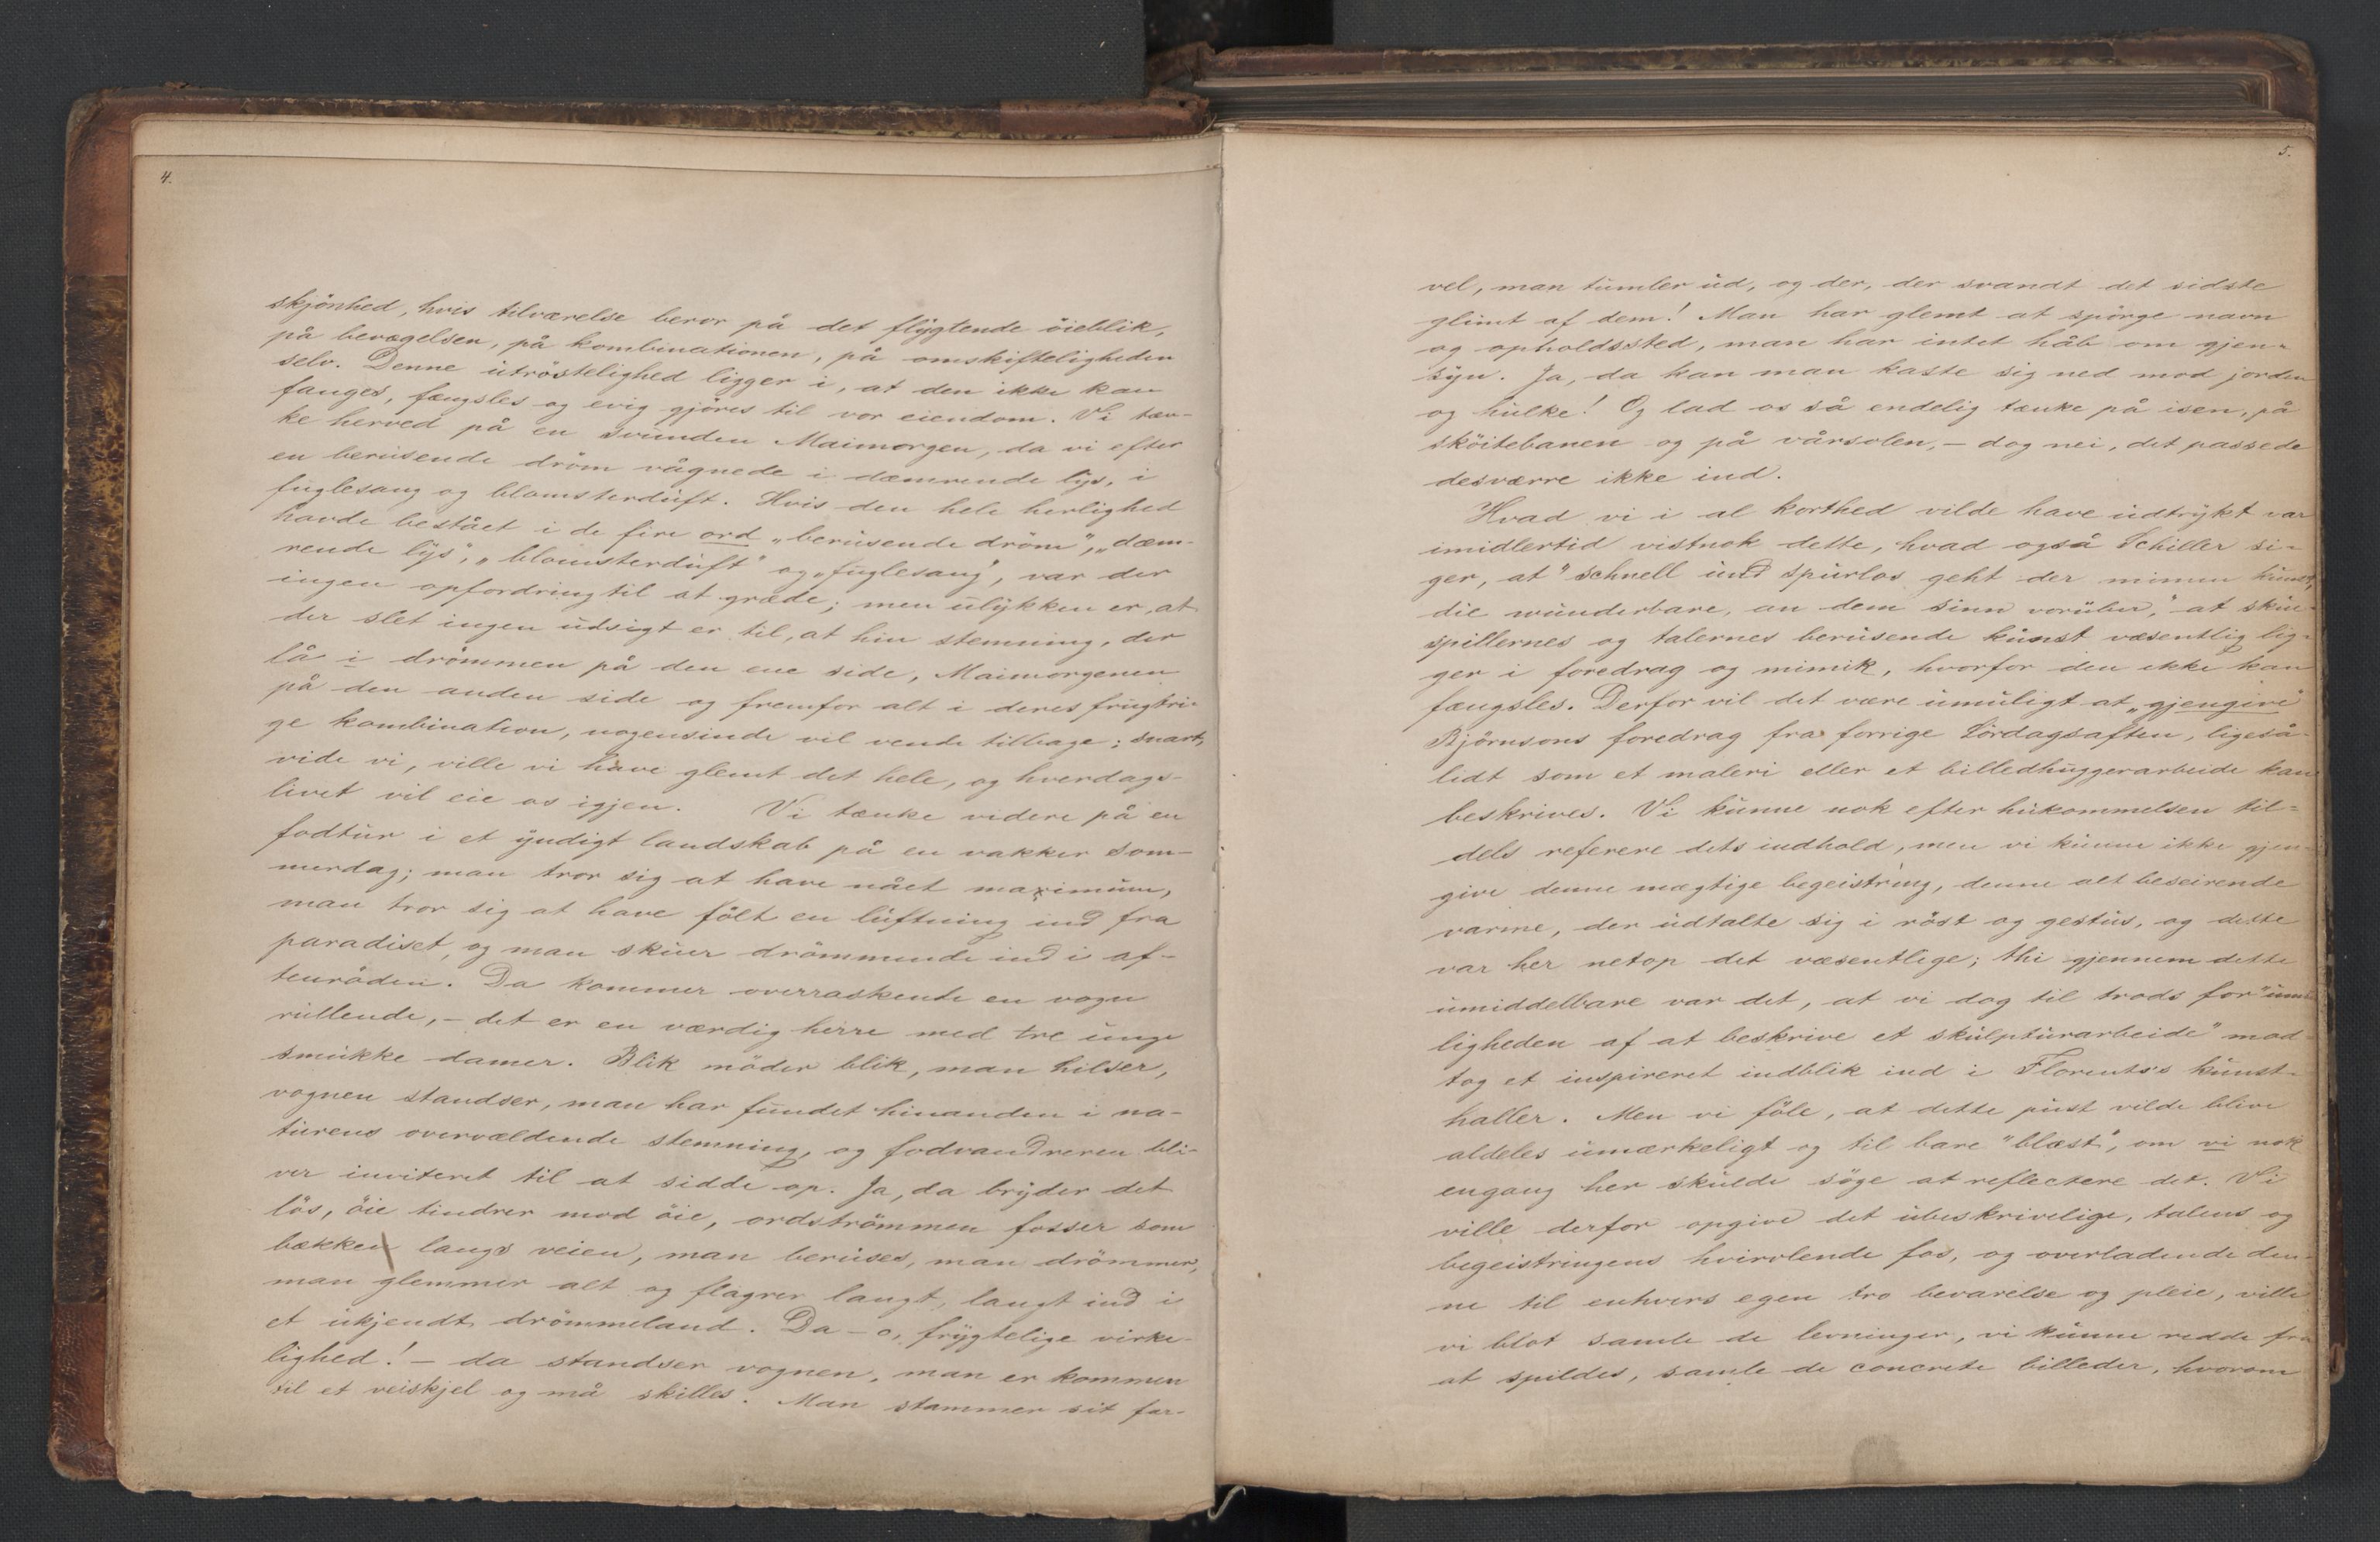 4.
skjönhed, hvis tilværelse beror på det flygtende öieblik,
på bevægelsen, på kombinationen, på omskifteligheden
selv. Denne utröstelighed ligger i, at den ikke kan
fanges, fængsles og evig gjöres til vor eiendom. Vi tæn-
ke herved på en svunden Maimorgen, da vi efter
en berusende dröm vågnede i dæmrende lys, i
fuglesang og blomsterduft. Hvis den hele herlighed
havde bestået i de fire ord „berusende dröm", „dæm-
rende lys", „blomsterduft" og „fuglesang", var der
ingen opfordring til at græde; men ulykken er, at
der slet ingen udsigt er til, at hin stemning, der
lå i drömmen på den ene side, Maimorgenen
på den anden side og fremfor alt i deres frugtri-
ge kombination, nogensinde vil vende tilbage; snart,
vide vi, ville vi have glemt det hele, og hverdags-
livet vil eie os igjen. Vi tænke videre på en
fodtur i et yndigt landskab på en vakker som-
merdag; man tror sig at have nået maximum,
man tror sig at have fölt en luftning ind fra
paradiset, og man skuer drömmende ind i af-
tenröden. Da kommer overraskende en vogn
rullende, – det er en værdig herre med tre unge
smukke damer. Blik möder blik, man hilser,
vognen standser, man har fundet hinanden i na-
turens overvældende stemning, og fodvandreren bli-
ver inviteret til at sidde op. Ja, da bryder det
lös, öie tindrer mod öie, ordströmmen fosser som
bækken langs veien, man beruses, man drömmer,
man glemmer alt og flagrer langt, langt ind i
et ukjendt drömmeland. Da – o, frygtelige virke-
lighed! – da standser vognen, man er kommen
til et veiskjel og må skilles. Man stammer sit far-
5.
vel, man tumler ud, og der, der svandt det sidste
glimt af dem! Man har glemt at spörge navn
og opholdssted, man har intet håb om gjen-
syn. Ja, da kan man kaste sig ned mod jorden
og hulke! Og lad os så endelig tænke på isen, på
sköitebanen og på vårsolen, – dog nei, det passede
desværre ikke ind.
Hvad vi i al korthed vilde have udtrykt var
imidlertid vistnok dette, hvad også Schiller si-
ger, at "schnell und spurlos geht der mimen kunst,
die wunderbare, an dem sinn vorüber," at skue-
spillernes og talernes berusende kunst væsentlig lig-
ger i foredrag og mimik, hvorfor den ikke kan
fængsles. Derfor vil det være umuligt at „gjengive"
Björnsons foredrag fra forrige Lördagsaften, ligeså-
lidt som et maleri eller et billedhuggerarbeide kan
beskrives. Vi kunne nok efter hukommelsen til-
dels referere dets indhold, men vi kunne ikke gjen-
give denne mægtige begeistring, denne alt beseirende
varme, der udtalte sig i röst og gestus, og dette
var her netop det væsentlige; thi gjennem dette
umiddelbare var det, at vi dog til trods for "umu-
ligheden af at beskrive et skulpturarbeide" mod-
tog et inspireret indblik ind i Florents's kunst-
haller. Men vi föle, at dette pust vilde blive
aldeles umærkeligt og til bare "blæst", om vi nok
engang her skulde söge at reflectere det. Vi
ville derfor opgive det ubeskrivelige, talens og
begeistringens hvirvlende fos, og overladende den-
ne til enhvers egen tro bevarelse og pleie, ville
vi blot samle de levninger, vi kunne redde fra
at spildes, samle de concrete billeder, hvorom